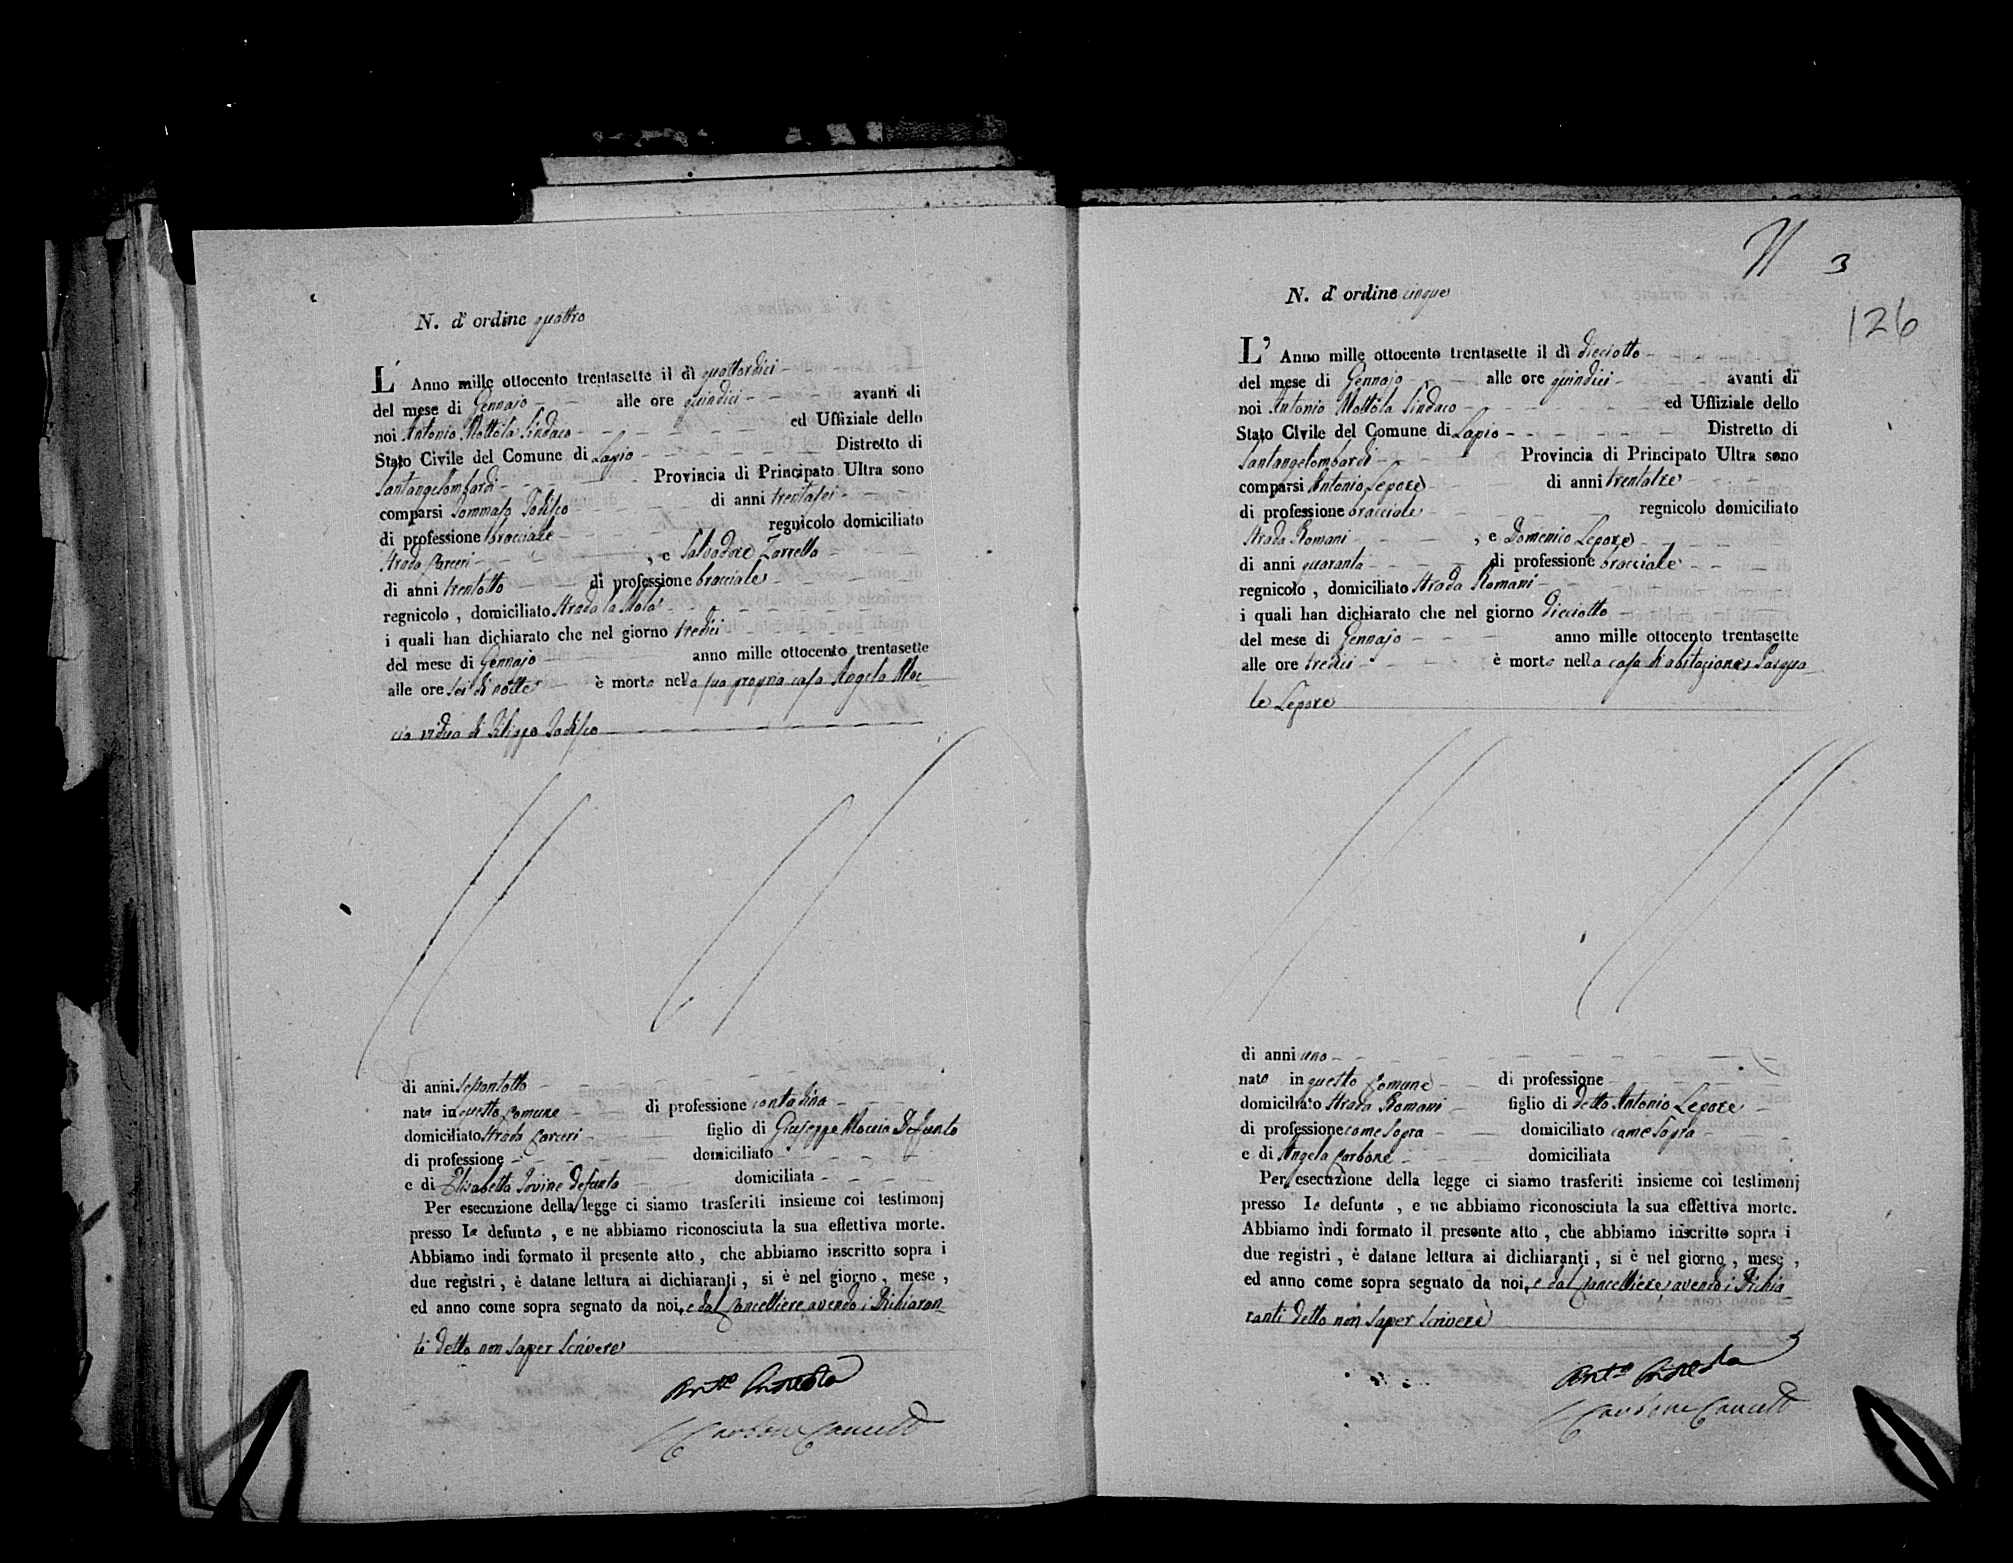 N. d' ordine quattro
L' Anno mille ottocento trentasette il dì quattordici
del mese di Gennajo alle ore quindici avanti di
noi Antonio Mottola Sindaco ed Uffiziale dello
Stato Civile del Comune di Lapio Distretto di
Santangelombardi Provincia di Principato Ultra sono
comparsi Tommaso Jodisco di anni trentasei
di professione bracciale regnicolo domiciliato
Strada Carceri , e Salvadore Zarrella
di anni trentotto di professione bracciale
regnicolo , domiciliato Strada la Mola
i quali han dichiarato che nel giorno tredici
del mese di Gennajo anno mille ottocento trentasette
alle ore sei di notte è morta nella sua propria casa Angela Moc-
cia vidua di Filippo Jodisco
di anni sessantotto
nata in questo Comune di professione contadina
domiciliato Strada Carceri figlio di Giuseppe Moccia Defunto
di professione domiciliato
e di Elisabetta Iovine defunta domiciliata
Per esecuzione della legge ci siamo trasferiti insieme coi testimonj
presso la defunta , e ne abbiamo riconosciuta la sua effettiva morte.
Abbiamo indi formato il presente atto , che abbiamo inscritto sopra i
due registri , è datane lettura ai dichiaranti , si è nel giorno , mese ,
ed anno come sopra segnato da noi, e dal Cancelliere avendo i Dichiaran-
ti detto non saper scrivere
Ant.o
Carbone Cancell
N 3
126
N. d' ordine cinque
L' Anno mille ottocento trentasette il dì dieciotto
del mese di Gennajo alle ore quindici avanti di
noi Antonio Mottola Sindaco ed Uffiziale dello
Stato Civile del Comune di Lapio Distretto di
Santangelombardi Provincia di Principato Ultra sono
comparsi Antonio Lepore di anni trentatre
di professione bracciale regnicolo domiciliato
Strada Romani , e Domenico Lepore
di anni quaranta di professione bracciale
regnicolo , domiciliato Strada Romani
i quali han dichiarato che nel giorno dieciotto
del mese di Gennajo anno mille ottocento trentasette
alle ore tredici è morto nella casa di abitazione Pasqua-
le Lepore
di anni uno
nato in questo Comune di professione
domiciliato Strada Romani figlio di detto Antonio Lepore
di professione come sopra domiciliato come sopra
e di Angela Carbone domiciliata
Per esecuzione della legge ci siamo trasferiti insieme coi testimonj
presso lo defunto , e ne abbiamo riconosciuta la sua effettiva morte.
Abbiamo indi formato il presente atto , che abbiamo inscritto sopra i
due registri , è datane lettura ai dichiaranti , si è nel giorno , mese ,
ed anno come sopra segnato da noi, e dal Cancelliere, avendo i Dichia-
ranti detto non saper scrivere
Ant.o
Carbone Cancell